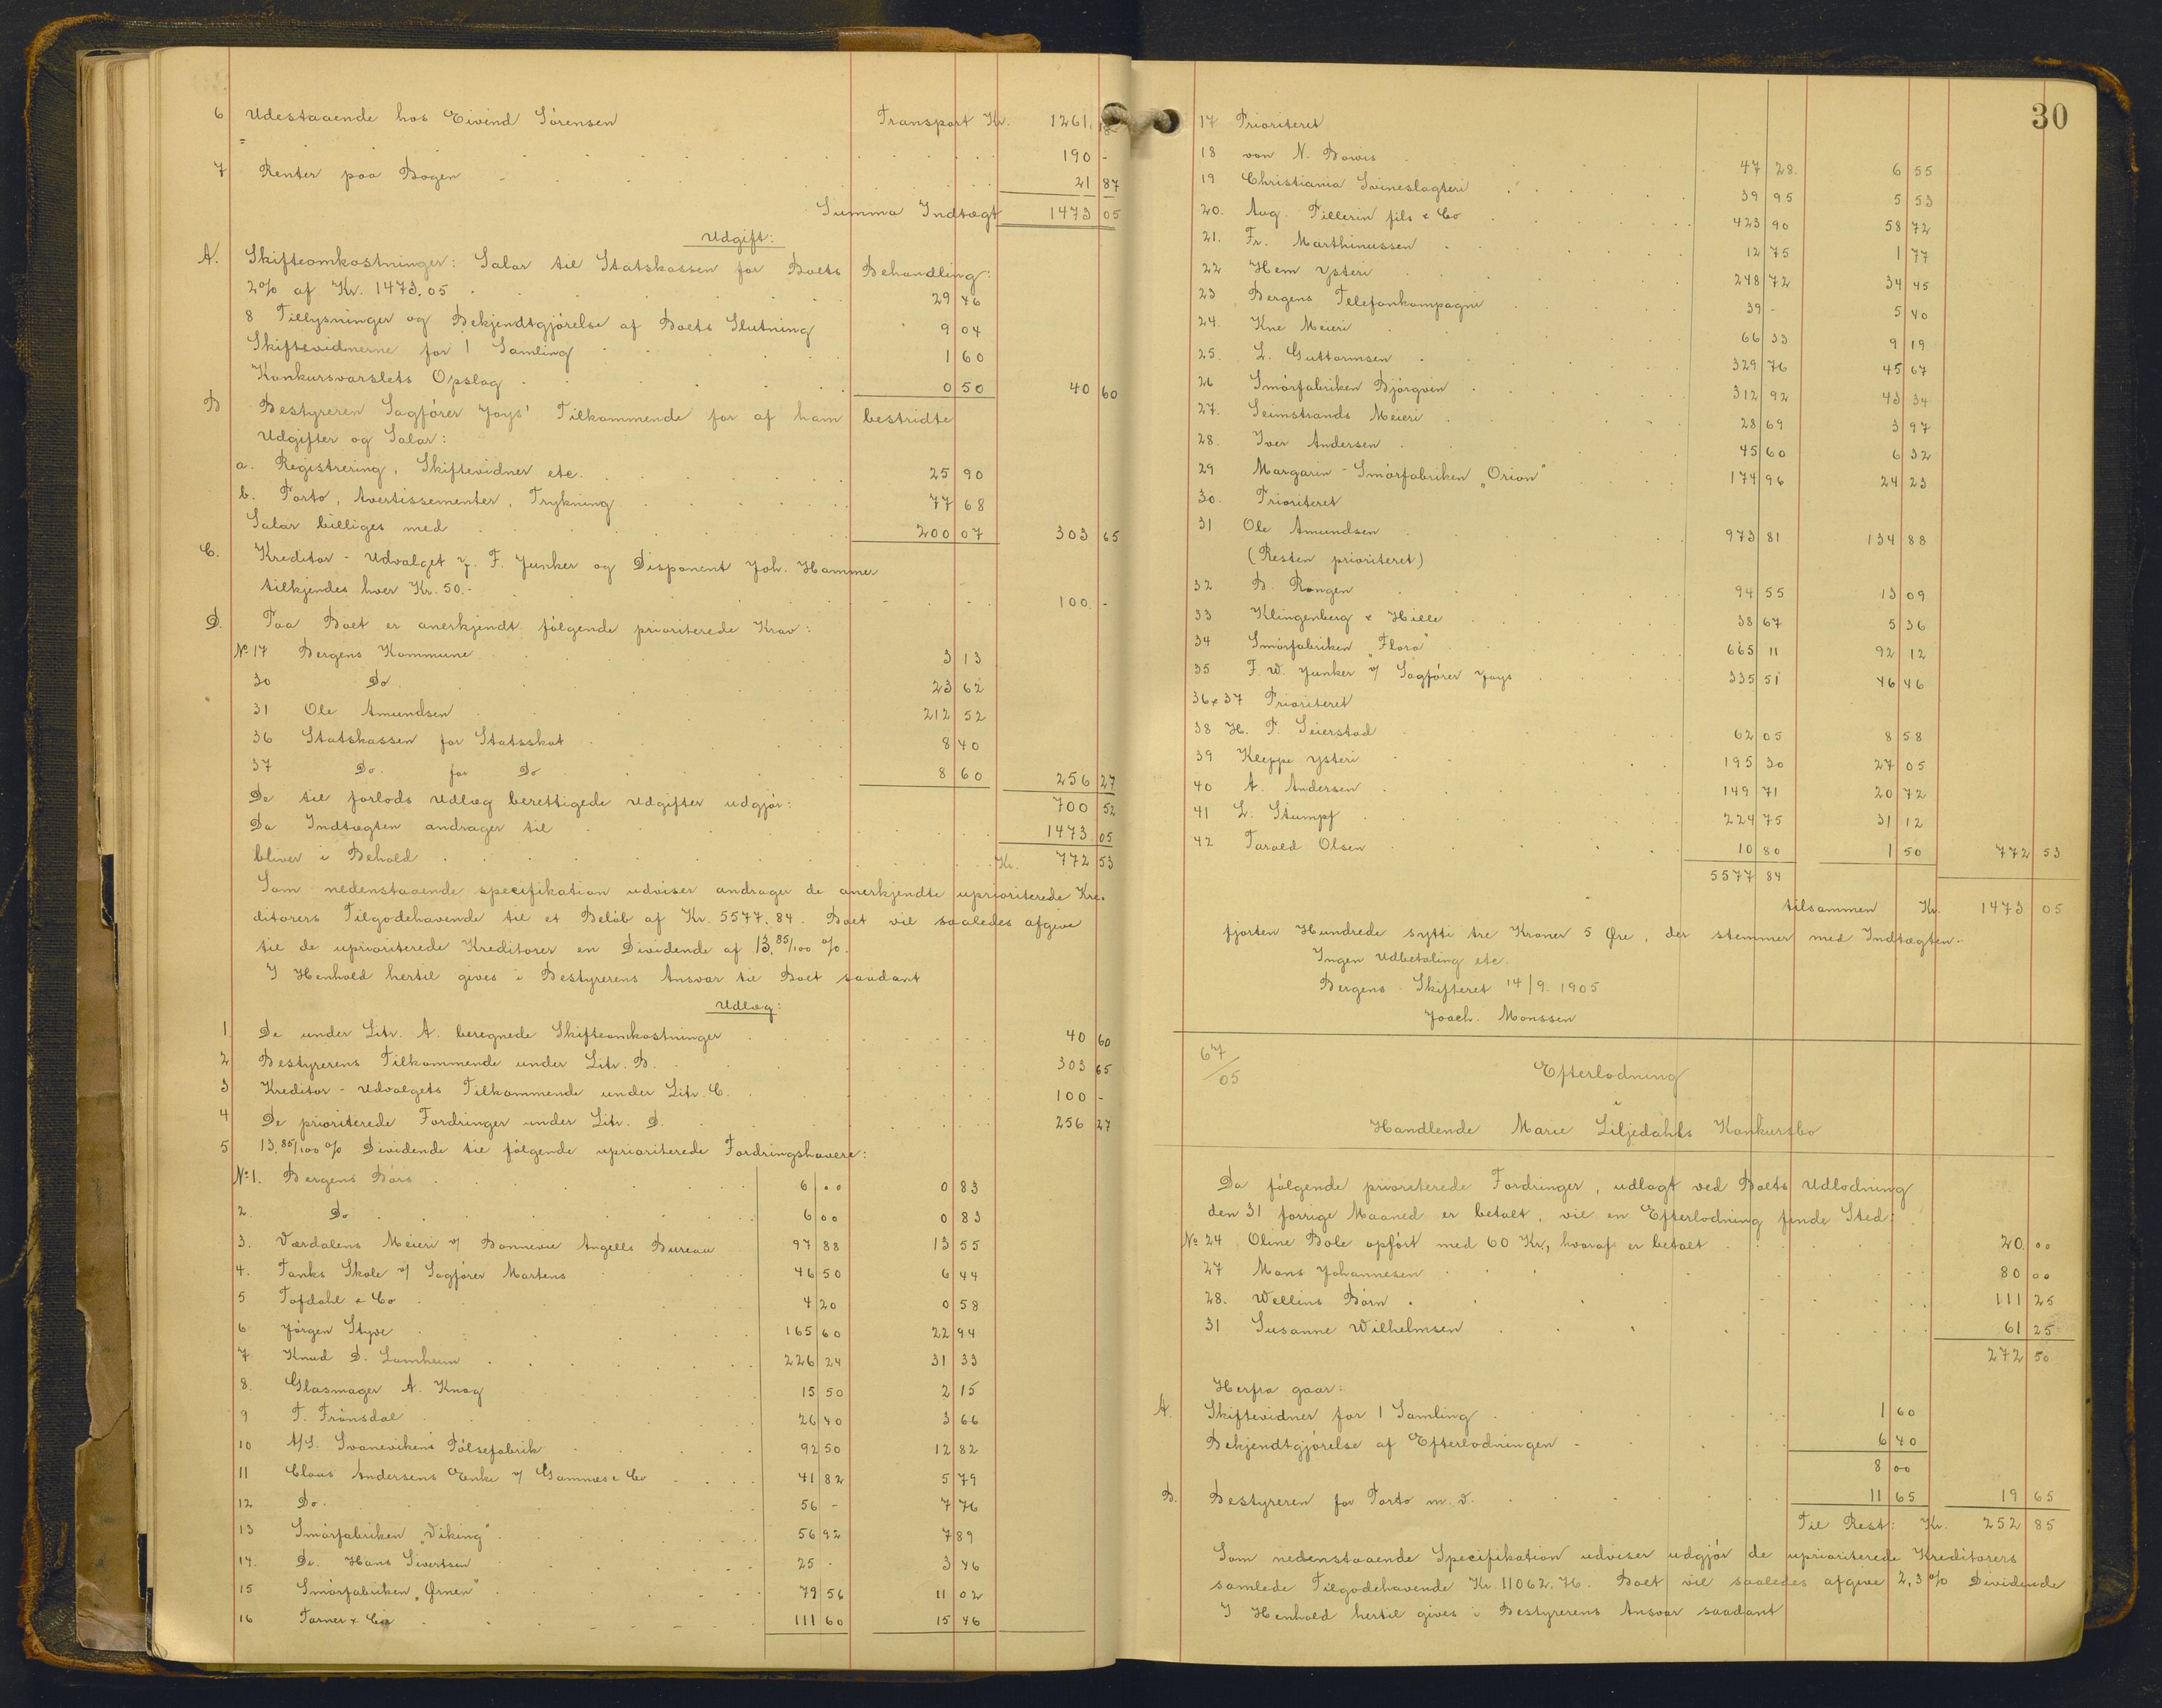 6 Udestaaende hos Eivind Sörensen Transport Kr. 1261.18
190 -
7 Renter paa Bogen 21 87
Summa Indtægt 1473 05
Udgift:
A. Skifteomkostninger: Salar til Statskassen for Boets Behandling:
2% af Kr. 1473.05 29 46
8 Tillysninger og Bekjendtgjörelse af Boets Slutning 9 04
Skiftevidnerne for 1 Samling 1 60
Konkursvarslets Opslag 0 50 40 60
B Bestyreren Sagförer Joys' Tilkommende for af ham bestridte
Udgifter og Salar:
a. Registrering, Skiftevidner etc. 25 90
b. Porto, Avertissementer, Trykning 77 68
Salar billiges med 200 07 303 65
C. Kreditor-Udvalget F. Junker og Disponent Joh. Hammer
tilkjendes hver Kr. 50.- 100. -
D. Paa Boet er anerkjendt fölgende prioriterede Krav:
No 17 Bergens Kommune 3 13
30 Do 23 62
31 Ole Amundsen 212 52
36 Statskassen for Statsskat 8 40
37 Do. for Do 8 60 256 27
De til forlods Udlæg berettigede Udgifter udgjör: 700 52
Da Indtægten andrager til 1473 05
bliver i Behold Kr. 772 53
Som nedenstaaende specifikation udviser andrager de anerkjendte uprioriterede Kre-
ditorers Tilgodehavende til et Belöb af Kr. 5577.84. Boet vil saaledes afgive
til de uprioriterede Kreditorer en Dividende af 13,85/100 %.
I Henhold hertil gives i Bestyrerens Ansvar til Boet saadant
Udlæg:
1. De under Litr. A. beregnede Skifteomkostninger 40 60
2 Bestyrerens Tilkommende under Litr. B. 303 65
3 Kreditor-Udvalgets Tilkommende under Litr. C. 100 -
4 De prioriterede Fordringer under Litr. D. 256 27
5 13,85/100 % Dividende til fölgende uprioriterede Fordringshavere:
No 1. Bergens Börs 6 00 0 83
2 Do 6 00 0 83
3. Værdalens Meieri v/ Bonnevie Angells Bureau 97 88 13 55
4. Tanks Skole v/ Sagförer Martens 46 50 6 44
5 Tofdahl & Co 4 20 0 58
6 Jörgen Styve 165 60 22 94
7 Knud D. Lomheim 226 24 31 33
8. Glasmager A. Knag 15 50 2 15
9 T. Frönsdal 26 40 3 66
10 A/S. Svanevikens Pölsefabrik 92 50 12 82
11 Claus Andersens Enke v/ & Co 41 82 5 79
12 Do. 56 - 7 76
13 Smörfabriken "Viking" 56 92 7 89
14. Dr. Hans Sivertsen 25 - 3 46
15 Smörfabriken "Ørnen" 79 56 11 02
16 Farner & Cie 111 60 15 46
30
17 Prioriteret
18 von N. Bowis 47 28. 6 55
19 Christiania Svineslagteri 39 95 5 53
20. Aug. Pellerin fils & Co 423 90 58 72
21. Fr. Marthinussen 12 75 1 77
22 Hem Ysteri 248 72 34 45
23 Bergens Telefonkompagni 39 - 5 40
24. Kne Meieri 66 33 9 19
25. L. Guttormsen 329 76 45 67
26 Smörfabriken Björgvin 312 92 43 34
27. Seimstrands Meieri 28 69 3 97
28. Iver Andersen 45 60 6 32
29 Margarin-Smörfabriken "Orion" 174 96 24 23
30. Prioriteret
31 Ole Amundsen 973 81 134 88
(Resten prioriteret)
32 B. Rongen 94 55 13 09
33 Klingenberg & Hille 38 67 5 36
34 Smörfabriken "Flora" 665 11 92 12
35 F. W. Junker v/ Sagförer Joys 335 51 46 46
36 & 37 Prioriteret
38 H. P. Seierstad 62 05 8 58
39 Kleppe Ysteri 195 30 27 05
40 A. Andersen 149 71 20 72
41 L. Stumpf 224 75 31 12
42 Tarald Olsen 10 80 1 50 772 53
5577 84
tilsammen Kr. 1473 05
fjorten Hundrede sytti tre Kroner 5 Øre, der stemmer med Indtægten.
Ingen Udbetaling etc.
Bergens Skifteret 14/9. 1905
Joach. Monssen
67/05 Efterlodning
i
Handlende Marie Liljedahls Konkursbo
Da fölgende prioriterede Fordringer, udlagt ved Boets Udlodning
den 31 forrige Maaned er betalt, vil en Efterlodning finde Sted:
No 24 Oline Bole opfört med 60 Kr., hvoraf er betalt 20 00
27 Mons Johannesen 80 00
28. Wellins Börn 111 25
31 Susanne Wilhelmsen 61 25
272 50
Herfra gaar:
A. Skiftevidner for 1 Samling 1 60
Bekjendtgjörelse af Efterlodningen 6 40
8 00
B. Bestyreren for Porto m. v. 11 65 19 65
Til Rest: Kr. 252 85
Som nedenstaaende Specifikation udviser udgjör de uprioriterede Kreditorers
samlede Tilgodehavende Kr. 11062. Boet vil saaledes afgive 2,3 % Dividende
I Henhold hertil gives i Bestyrerens Ansvar saadant